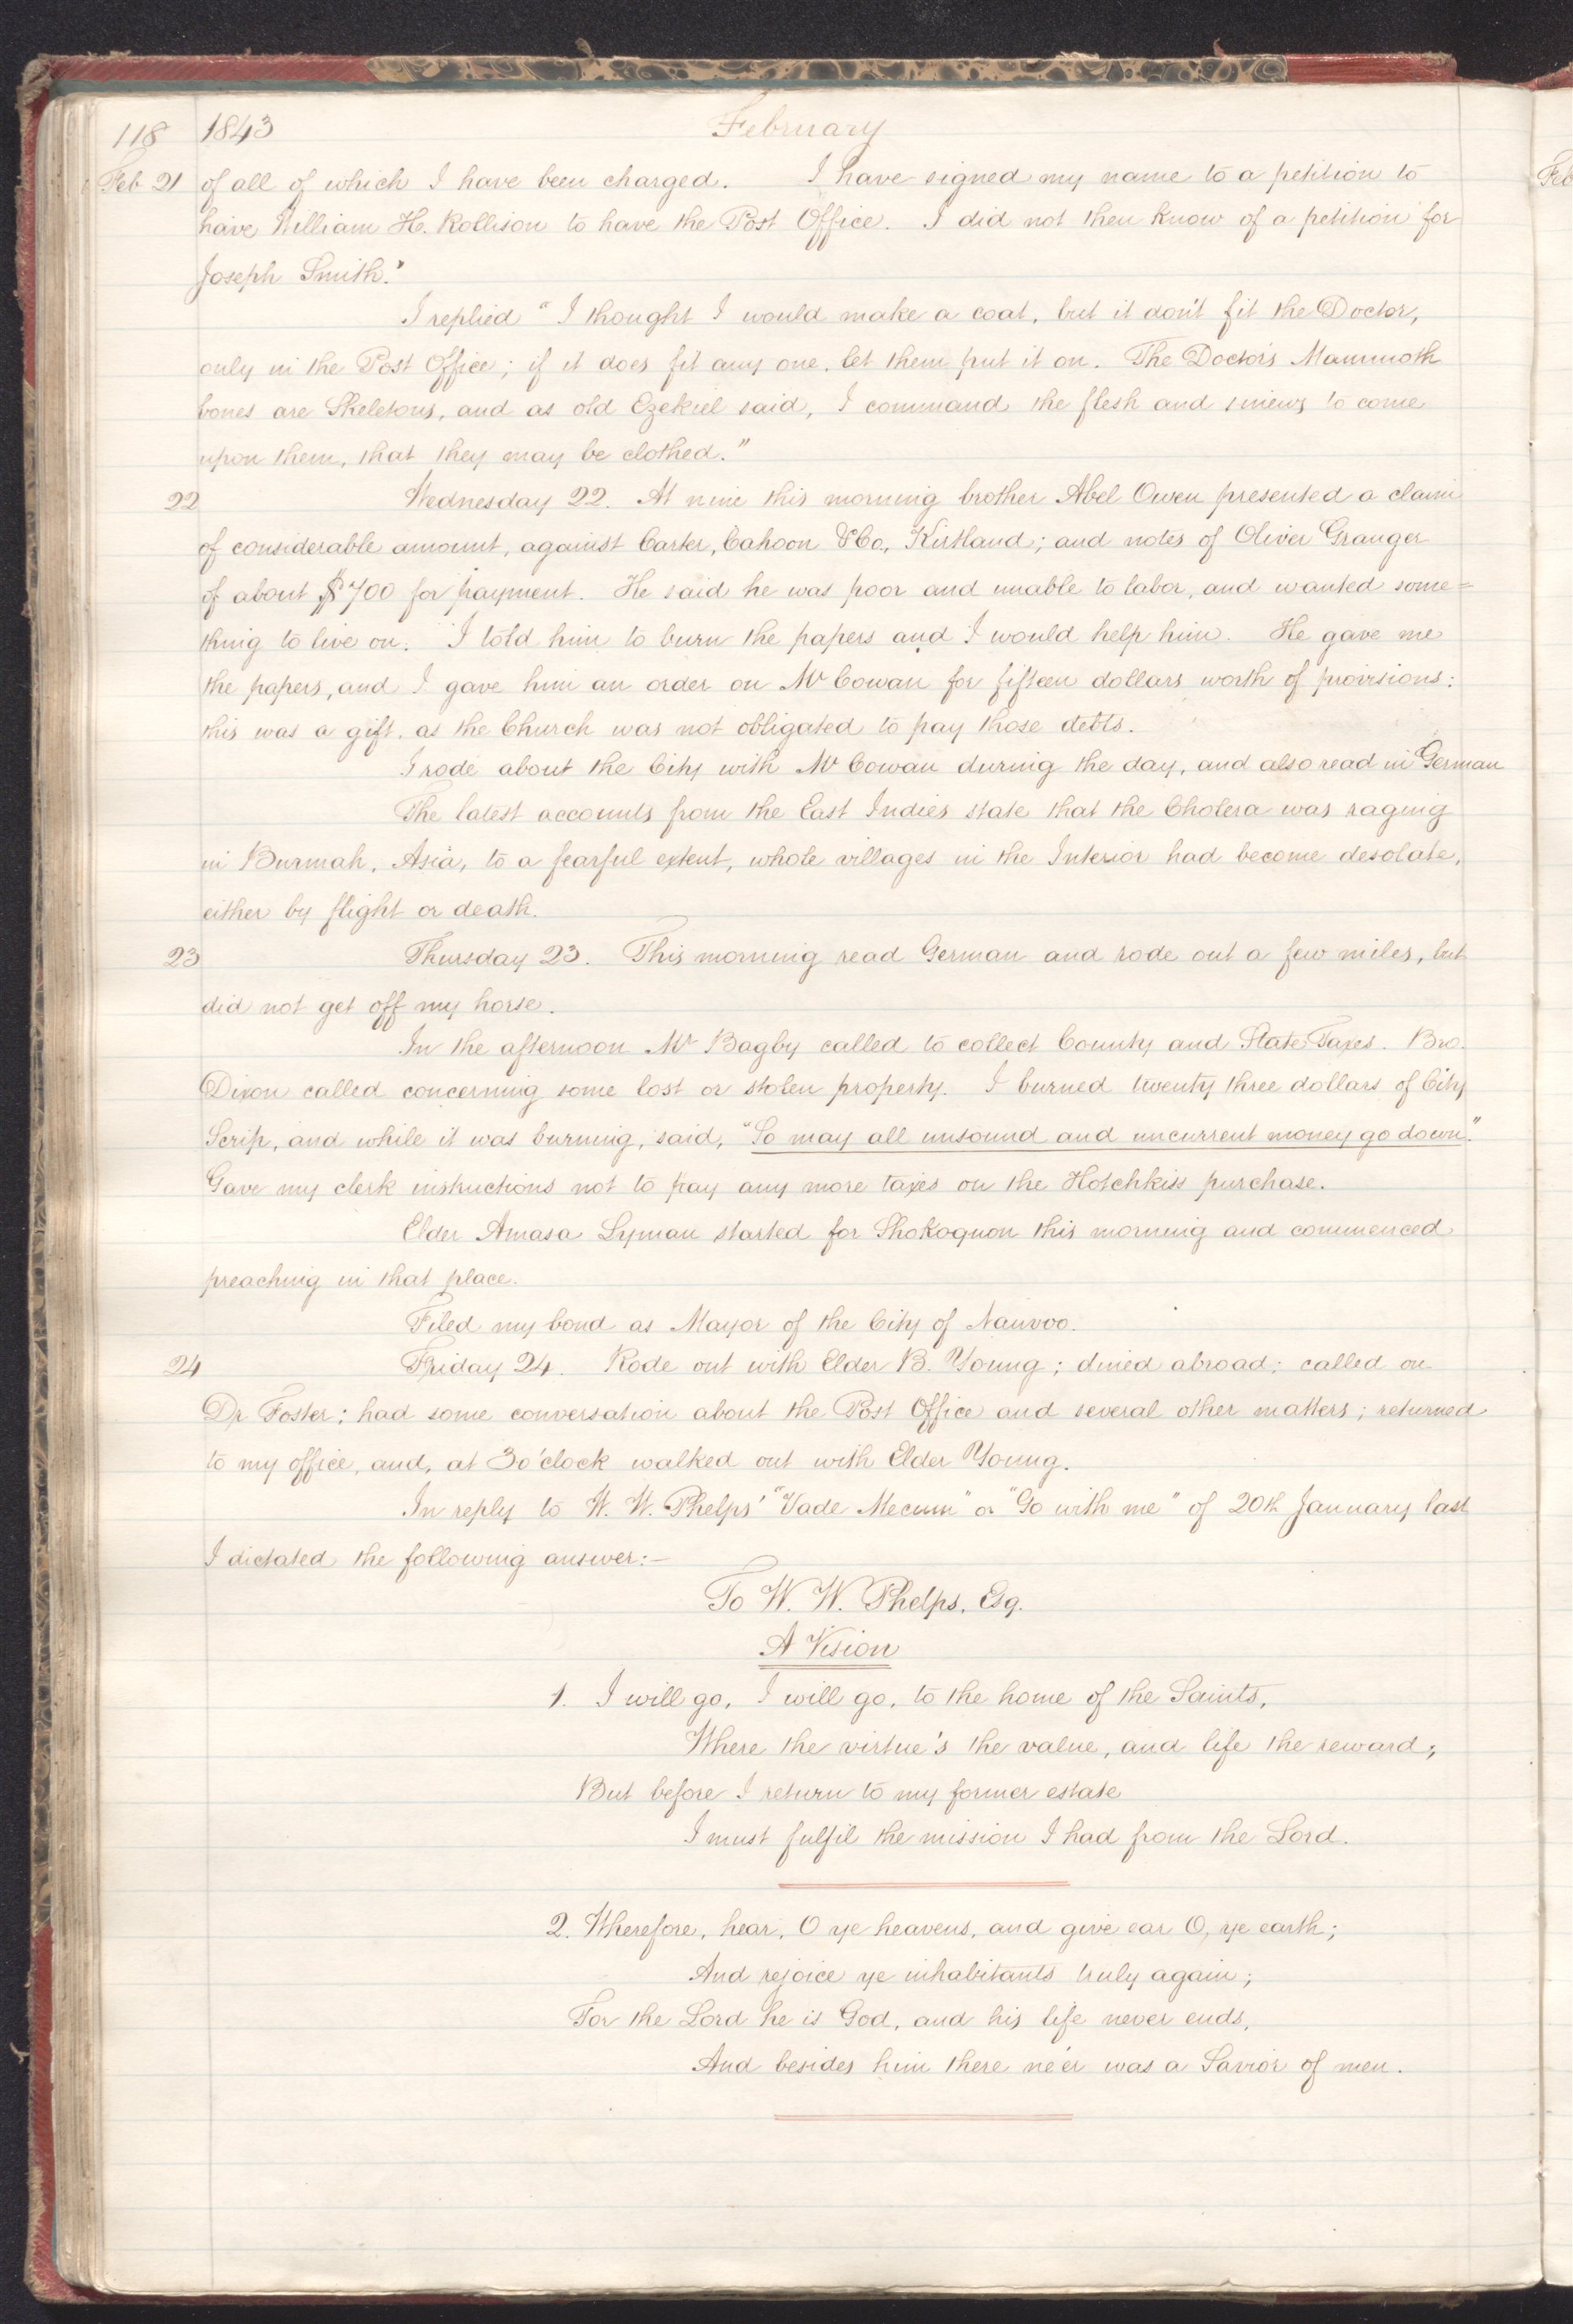 118 1843 February
Feb 21 of all of which I have been charged. I have signed my name to a petition to
have William H. Rollison to have the Post Office. I did not then know of a petition for
Joseph Smith."
I replied "I thought I would make a coat, but it don't fit the Doctor,
only in the Post Office; if it does fit any one, let them put it on. The Doctor's Mammoth
bones are Skeletons, and as old Ezekiel said, I command the flesh and sinews to come
upon them, that they may be clothed."
22 Wednesday 22. At nine this morning brother Abel Owen presented a claim
of considerable amount, against Carter, Cahoon & Co., Kirtland; and notes of Oliver Granger
of about $700 for payment. He said he was poor and unable to labor, and wanted some=
thing to live on. I told him to burn the papers and I would help him. He gave me
the papers, and I gave him an order on Mr Cowan for fifteen dollars worth of provisions:
this was a gift, as the Church was not obligated to pay those debts.
I rode about the City with Mr Cowan during the day, and also read in German
The latest accounts from the East Indies state that the Cholera was raging
in Burmah, Asia, to a fearful extent, whole villages in the Interior had become desolate,
either by flight or death.
23 Thursday 23. This morning read German and rode out a few miles, but
did not get off my horse.
In the afternoon Mr Bagby called to collect County and State Taxes. Bro.
Dixon called concerning some lost or stolen property. I burned twenty three dollars of City
Scrip, and while it was burning, said, "So may all unsound and uncurrent money go down."
Gave my clerk instructions not to pay any more taxes on the Hotchkiss purchase.
Elder Amasa Lyman started for Shokoquon this morning and commenced
preaching in that place.
Filed my bond as Mayor of the City of Nauvoo.
24 Friday 24. Rode out with Elder B. Young; dined abroad; called on
Dr Foster; had some conversation about the Post Office and several other matters; returned
to my office, and, at 3 o'clock walked out with Elder Young.
In reply to W. W. Phelps' "Vade Mecum" or "Go with me" of 20th January last
I dictated the following answer:—
To W. W. Phelps, Esq.
A Vision
1. I will go, I will go, to the home of the Saints,
Where the virtue's the value, and life the reward;
But before I return to my former estate
I must fulfil the mission I had from the Lord.
2. Wherefore, hear, O ye heavens, and give ear O, ye earth;
And rejoice ye inhabitants truly again;
For the Lord he is God, and his life never ends,
And besides him there ne'er was a Savior of men.
Feb